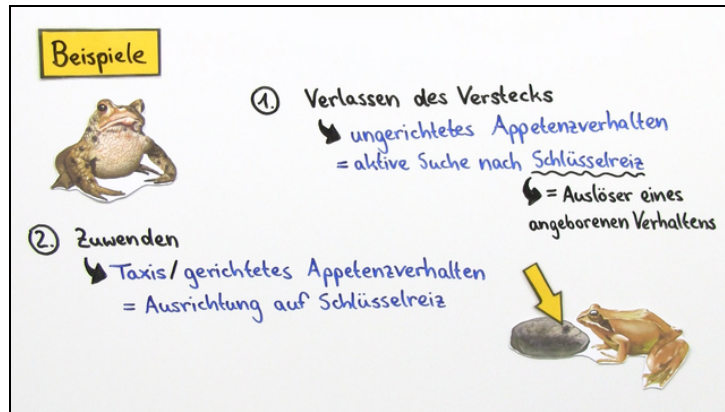 Beispiele
1. Verlassen des Verstecks
ungerichtetes Appetenzverhalten
= aktive Suche nach Schlüsselreiz
= Auslöser eines
angeborenen Verhaltens
2. Zuwenden
Taxis/gerichtetes Appetenzverhalten
= Ausrichtung auf Schlüsselreiz